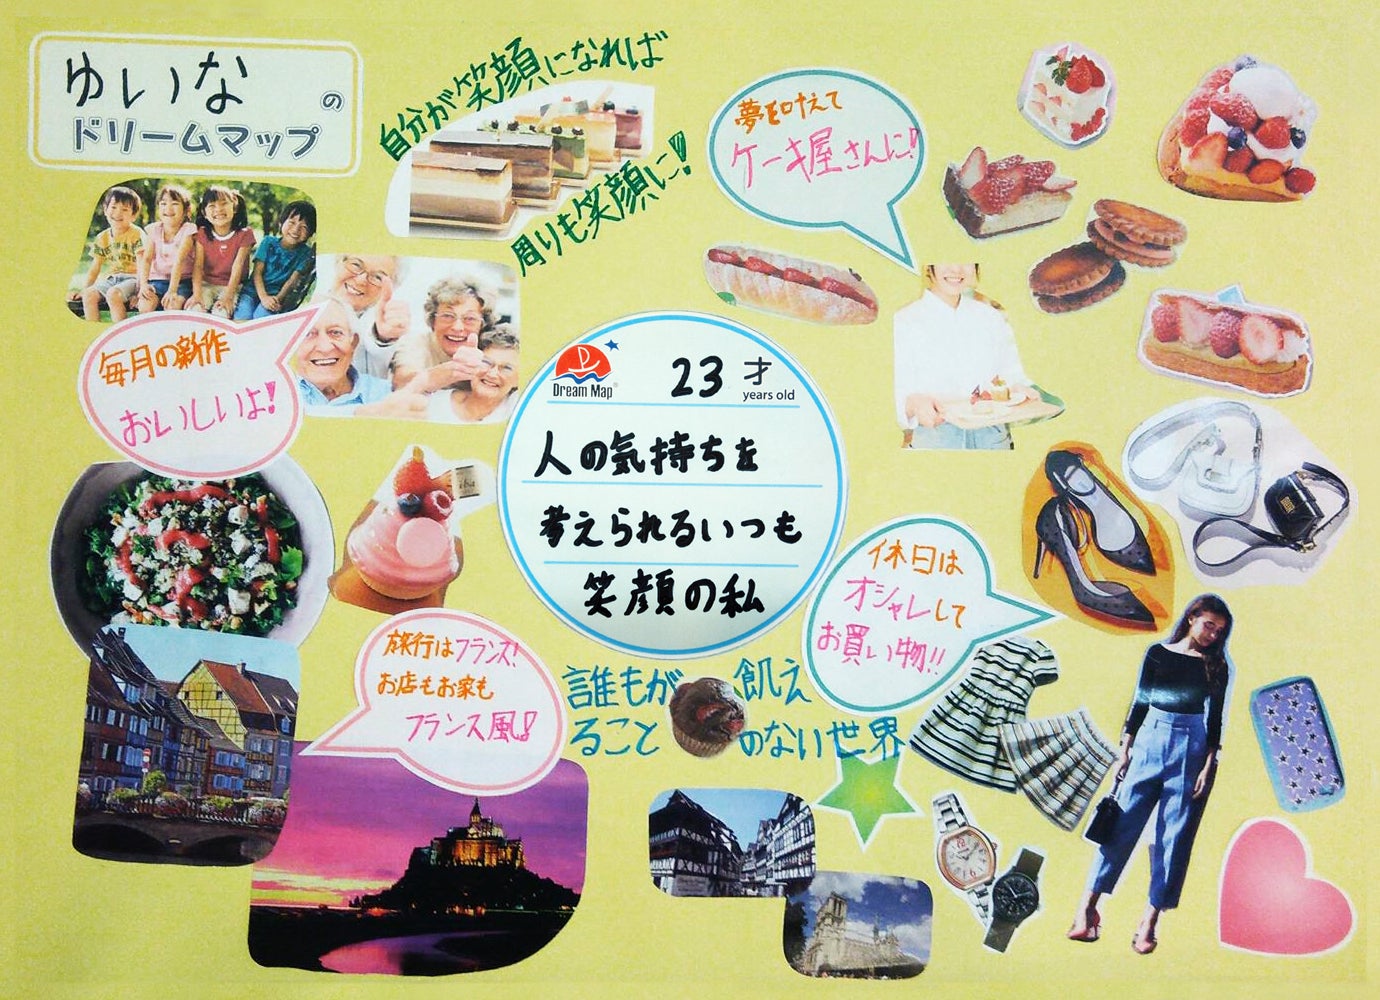 ゆいなの
ドリームマップ
自分が笑顔になれば
周りも笑顔に!
夢を叶えて
ケーキ屋さんに!
毎月の新作
おいしいよ!
Dream Map
23才
years old
人の気持ちを
考えられるいつも
笑顔の私
休日は
オシャレして
お買い物!!
旅行はフランス!
お店もお家も
フランス風!
誰もが飢え
ることのない世界